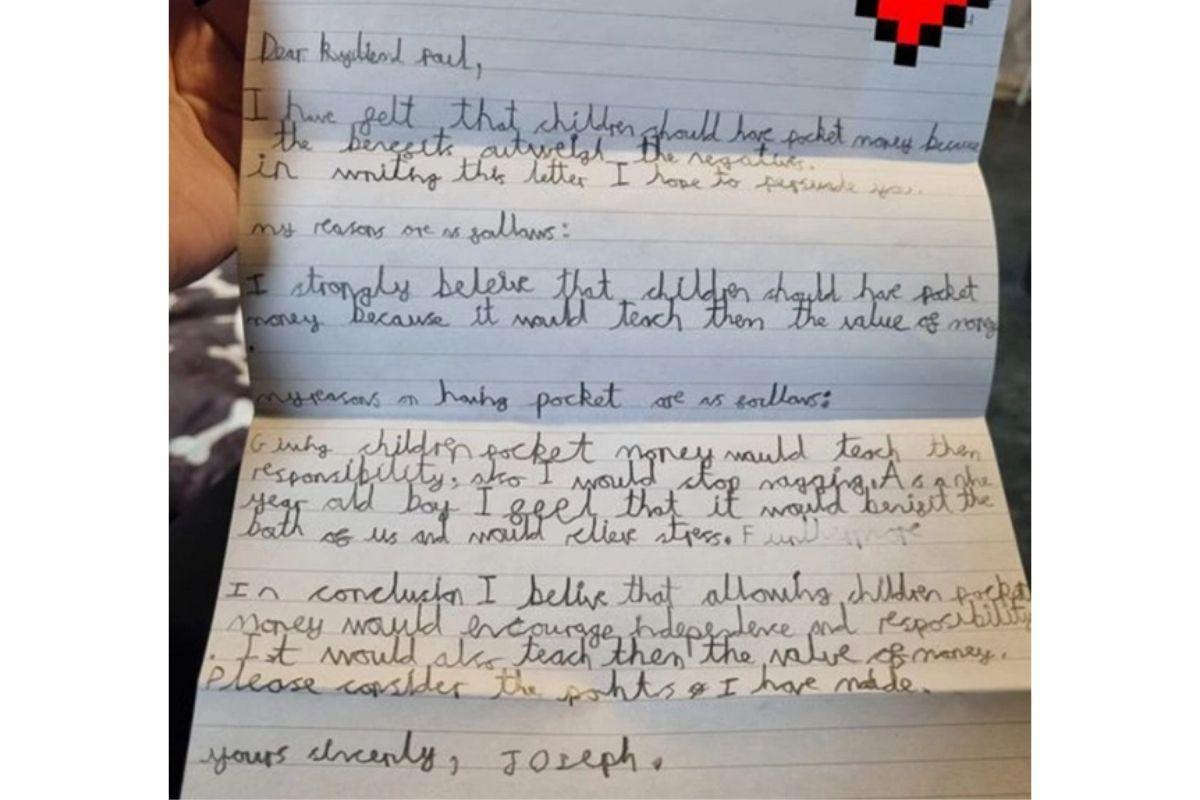 Dear Paul,
I have felt that children should have pocket money because
the benefits outweigh the negatives.
in writing this letter I hope to persuade you.
my reasons are as follows:
I strongly beleive that children should have pocket
money because it would teach them the value of money
.
my reasons on having pocket are as follows:
Giving children pocket money would teach them
responsibility, also I would stop nagging. As a nine
year old boy I feel that it would benifit the
both of us and would relieve stress.
In conclusion I belive that allowing children pocket
money would encourage independence and resposibility
. Ist would also teach them the value of money.
Please consider the points I have made.
yours sincerly, Joseph.